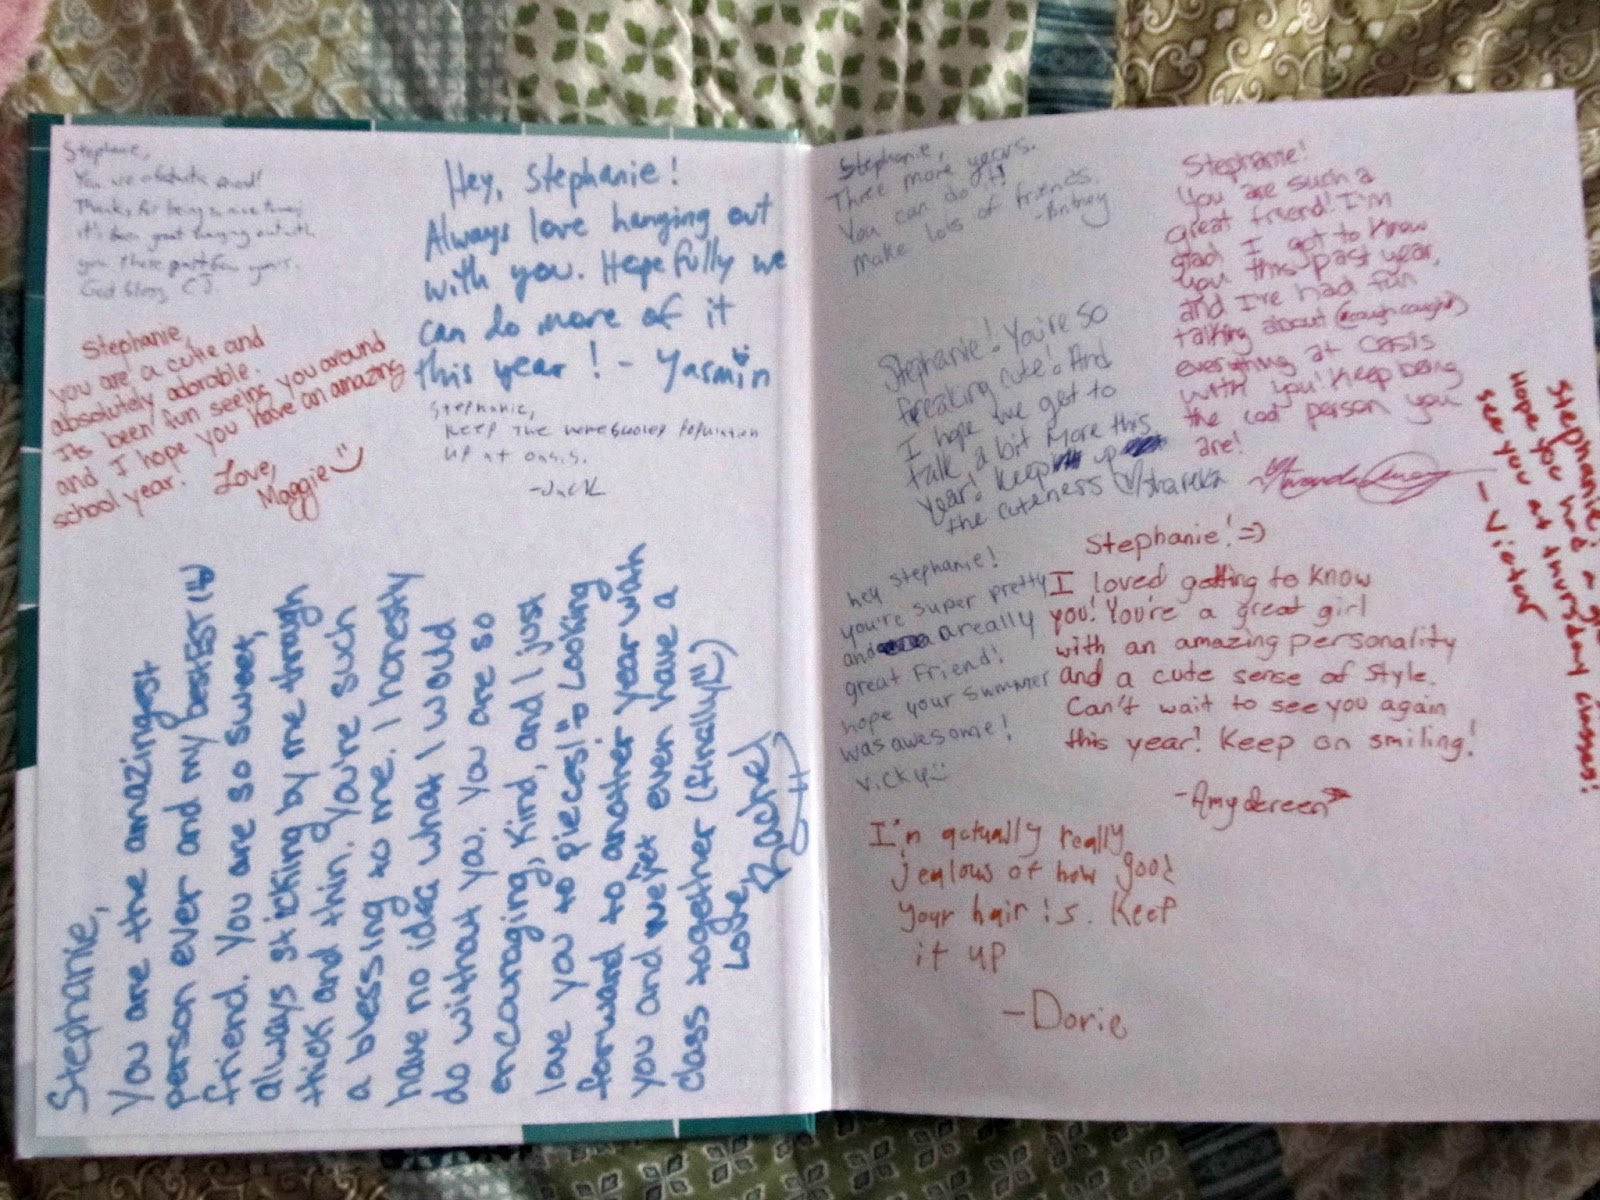 Stephanie,
You are absolute
Thanks for being
it's been great hanging out with
you these past few years.
God bless, CJ.
Hey, Stephanie!
Always love hanging out
with you. Hopefully we
can do more of it
this year! - Yasmin
Stephanie,
you are a cute and
absolutely adorable.
Its been fun seeing you around
and I hope you have an amazing
school year. Love,
Maggie
Stephanie,
Keep the population
up at oasis.
-Jack
Stephanie,
You are the amazingest
person ever and my bestEST
friend. You are so sweet,
always sticking by me through
thick and thin. You're such
a blessing to me. I honestly
have no idea what I would
do without you. You are so
encouraging, kind, and I just
love you to pieces! Looking
forward to another year with
you and even have a
class together (finally)
Love,
Rachel
Stephanie,
Three more years.
You can do it!
Make lots of friends.
Stephanie!
You are such a
great friend! I'm
glad I got to know
you this past year,
and I've had fun
talking about (cough cough)
everything at oasis
with you! Keep being
the cool person you
are!
Stephanie! You're so
freaking cute! And
I hope we get to
talk a bit more this
year! Keep up
the cuteness Shareka
Stephanie!
Hope you had a
see you at thursday classes!
- Victor
hey stephanie!
you're super pretty
and a really
great friend!
hope your summer
was awesome!
Vicky
Stephanie! =)
I loved getting to know
you! You're a great girl
with an amazing personality
and a cute sense of style.
Can't wait to see you again
this year! Keep on smiling!
I'm actually really
jealous of how good
your hair is. Keep
it up
-Dorie